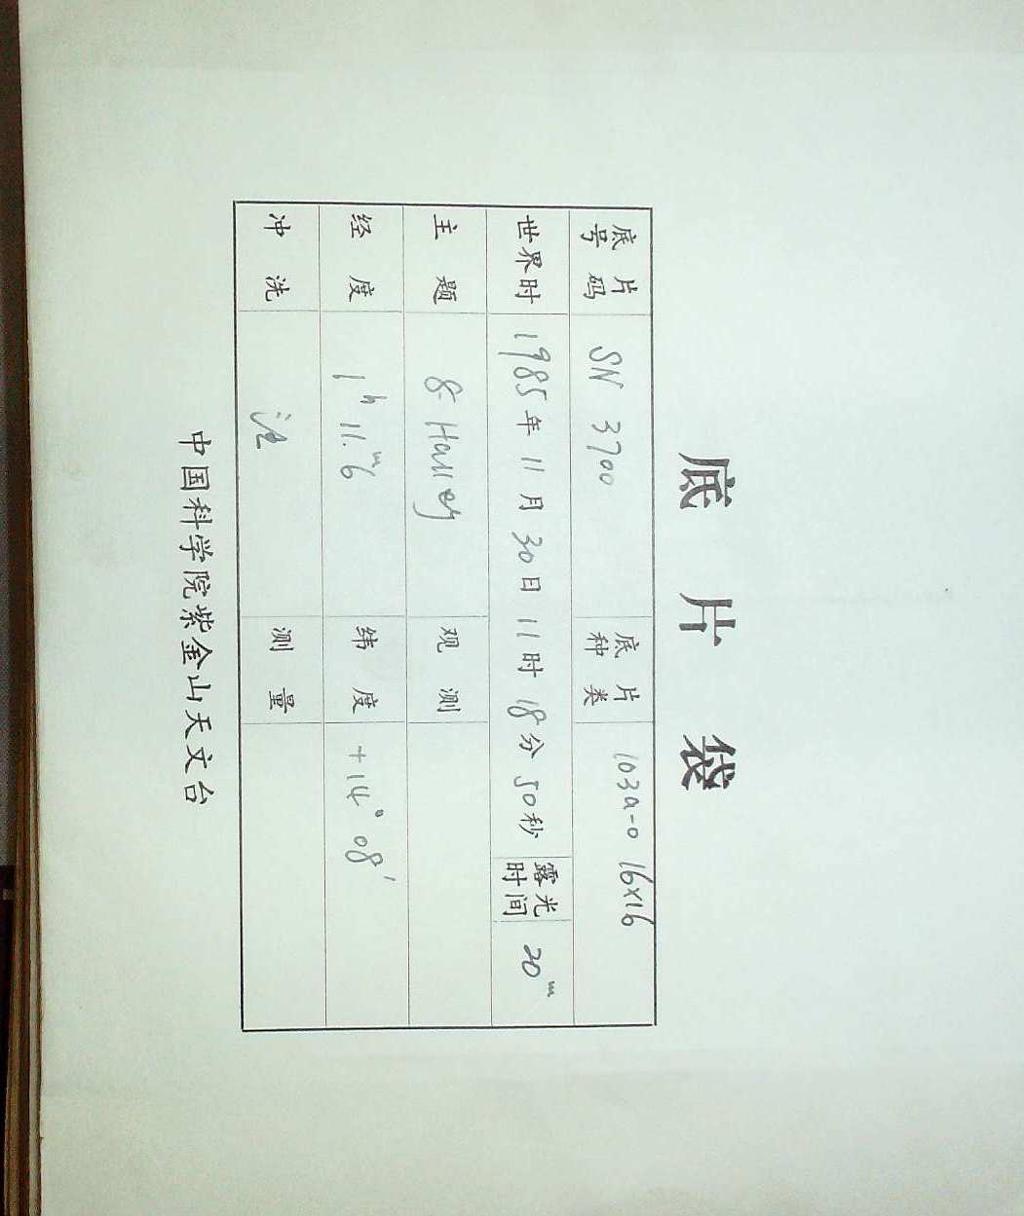 底片袋
底片号码 SN 3700 底片种类 103a-0 16x16
世界时 1985年11月30日11时18分50秒 露光时间 20ᵐ
主题 & Halley 观测
经度 1ʰ 11.ᵐ6 纬度 +14° 08′
冲洗 测量
中国科学院紫金山天文台